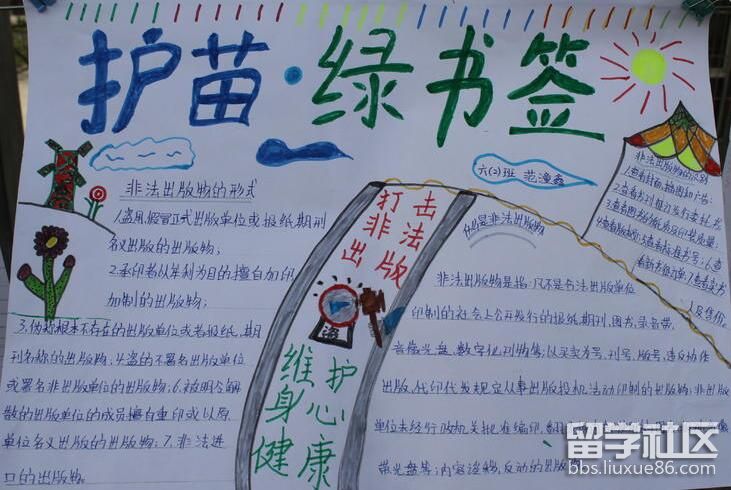 护苗·绿书签
六(2)班 范
非法出版物的形式
1.盗用、假冒正式出版单位或报纸期刊
名义出版的出版物;
2.承印者以牟利为目的擅自加印
加制的出版物;
3.伪称根本不存在的出版单位或者报纸,期
刊名称的出版物,4.盗的不署名出版单位
或署名非出版单位的出版物;6.被明令解
散的出版单位的成员擅自重印或以原
单位名义出版的出版物;7.非法进
口的出版物。
打击
非法
出版
盗
维护
身心
健康
什么是非法出版物
非法出版物是指:凡不是合法出版单位
印制的社会上公开发行的报纸期刊、图书、录音带、
音像光盘、数字化刊物售;以买卖书号、刊号、版号、违反协作
出版、代印代发规定从事出版投机活动印制的出版物;非出版
单位未经行政机关批准编印、翻
像光盘等;内容淫秽、反动的出版
非法出版物的识别
1.查看封面、插图和广告;
人及售价。
留学社区
bbs.liuxue86.com